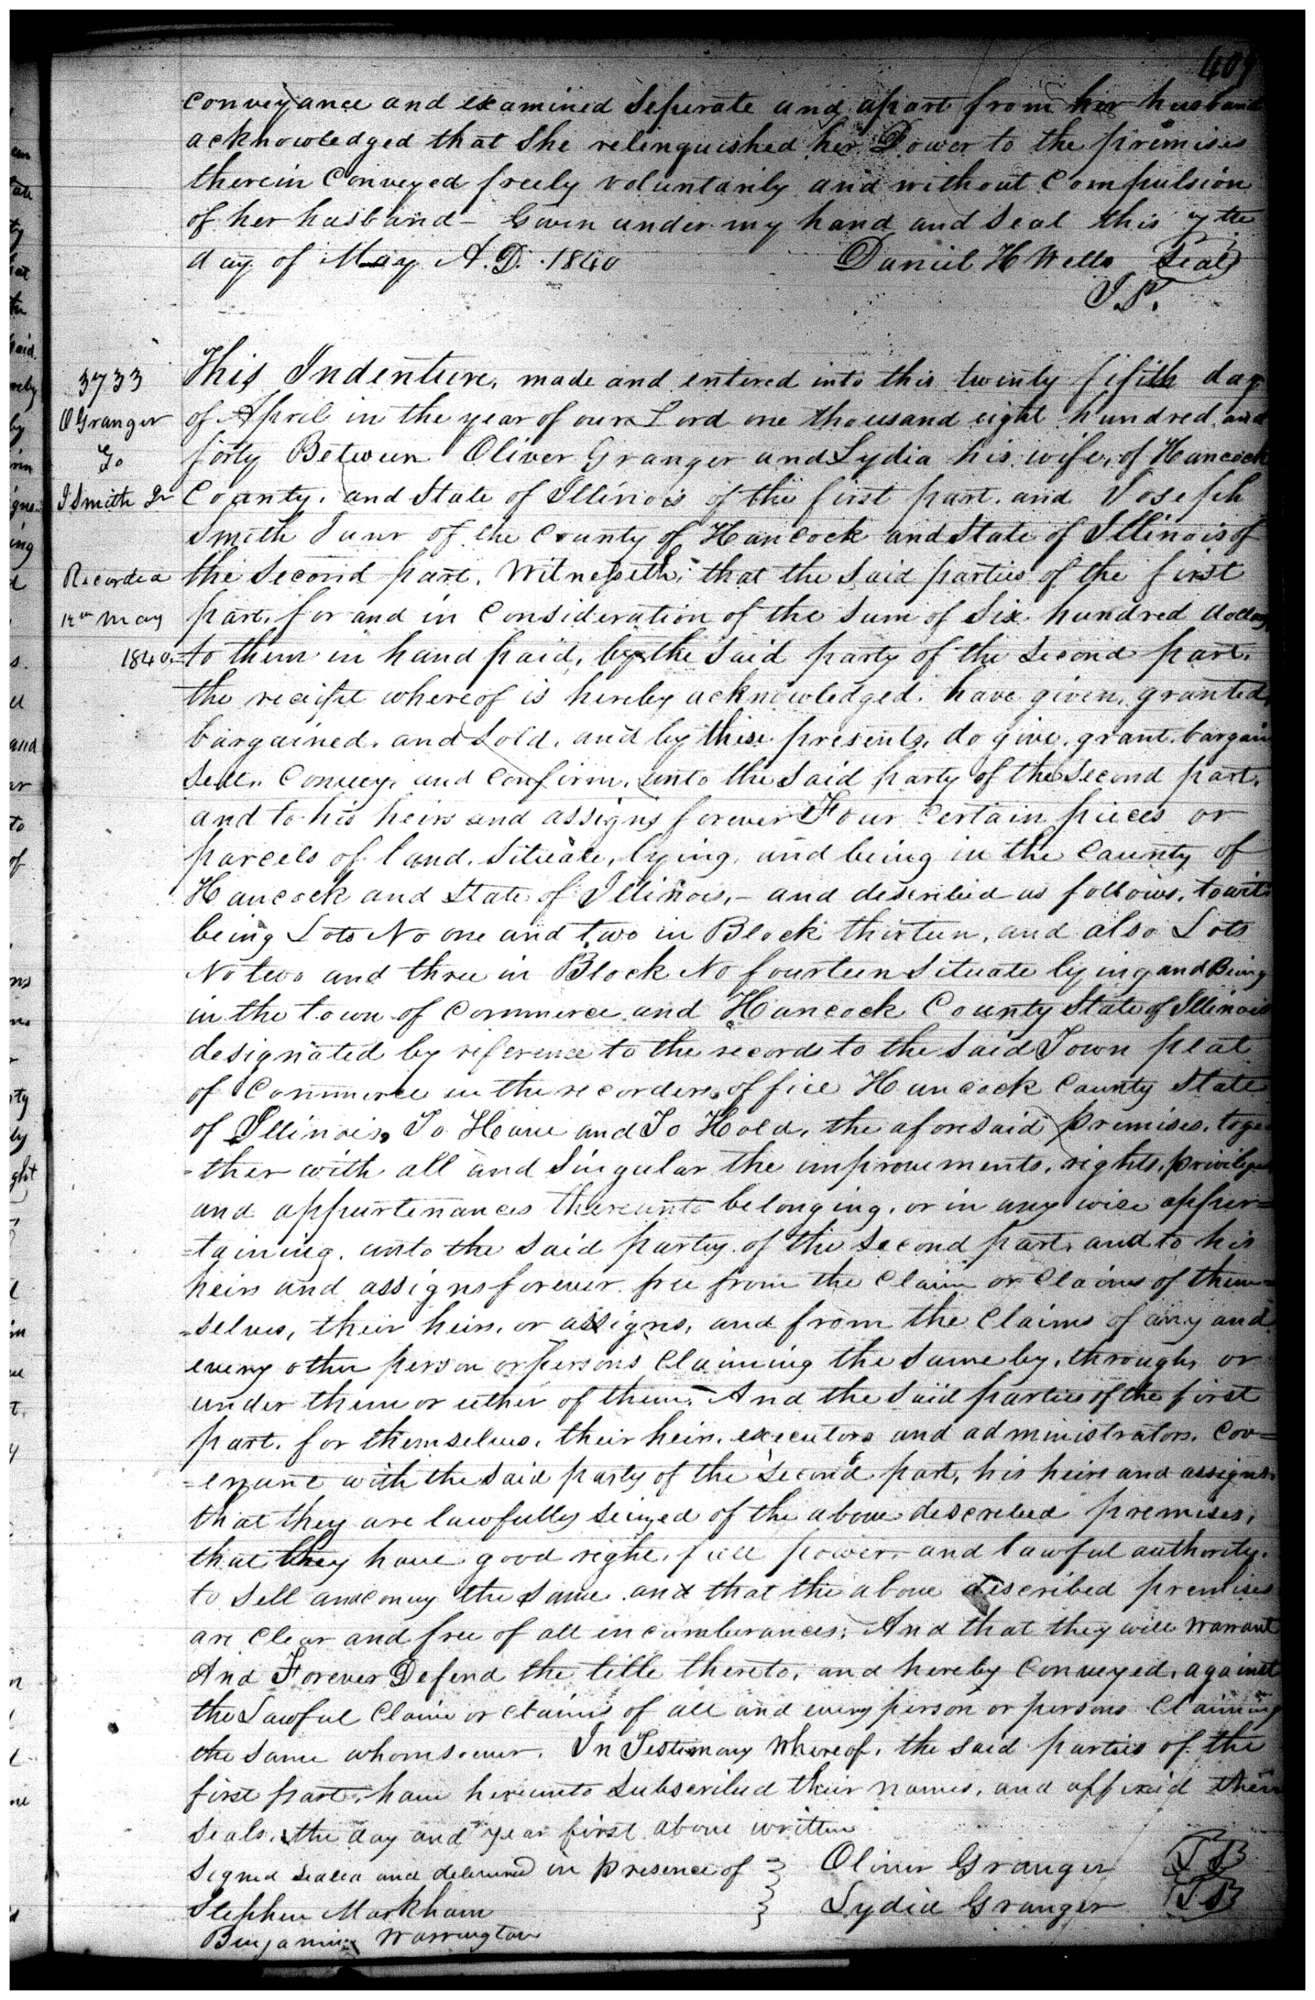 409
conveyance and examined Seperate and apart from her husband
acknowledged that She relinquished her Dower to the premises
therein Conveyed freely voluntarily and without Compulsion
of her husband – Given under my hand and Seal this 7th
day of May A.D. 1840 Daniel H Wells Seal
J.P.
3733
O Granger
To
J Smith Jr
Recorded
12th May
1840.
This Indenture, made and entered into this twinty fifth day
of April in the year of our Lord one thousand eight hundred and
forty Between Oliver Granger and Lydia his wife, of Hancock
County, and State of Illinois of the first part, and Joseph
Smith Junr of the County of Hancock and State of Illinois of
the Second part, Witnesseth, that the Said parties of the first
part, for and in Consideration of the Sum of Six hundred dollars,
to them in hand paid, by the Said party of the Second part,
the reciept whereof is hereby acknowledged, have given, granted,
bargained, and Sold, and by these presents, do give, grant, bargain
Sell, Convey, and Confirm, unto the Said party of the Second part,
and to his heirs and assigns forever Four Certain pieces or
parcels of land, Situate, lying, and being in the County of
Hancock and State of Illinois, – and described as follows, towit
being Lots No one and two in Block thirteen, and also Lots
No two and three in Block No fourteen Situate lying and Being
in the town of Commerce and Hancock County State of Illinois
designated by reference to the records to the Said Town plat
of Commerce in the recorders office Hancock County State
of Illinois, To Have and To Hold, the aforesaid premises, toge
=ther with all and Singular the improvements, rights, privileges
and appurtenances thereunto belonging, or in any wise apper=
=taining, unto the Said party of the Second part, and to his
heirs and assigns forever free from the Claim or Claims of them=
=selves, their heirs, or assigns, and from the Claims of any and
every other person or persons Claiming the Same by, through, or
under them or either of them. And the Said parties of the first
part, for themselves, their heirs, executors and administrators, Cov=
=enant with the Said party of the Second part, his heirs and assigns
that they are lawfully Seized of the above described premises,
that they have good right, full power, and lawful authority,
to Sell and convey the Same and that the above described premises
are Clear and free of all incumberances; And that they will Warrant
And Forever Defend the title thereto, and hereby Conveyed, against
the Lawful Claim or Claims of all and every person or persons Claiming
the Same whomsoever. In Testimony Whereof, the Said parties of the
first part, have hereunto Subscribed their names, and affixed their
Seals, the day and year first above written
Signed Sealed and delivered in presence of Oliver Granger
Stephen Markham Lydia Granger
Benjamin Warrington